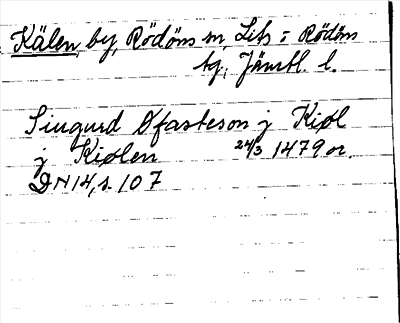 Kälen, by, Rödöns sn, Lits o Rödöns
tg, Jämtl. l.
Siugurd Ofasteson j Kiøl
j Kiølen 24/3 1479 or.
DN 14, s. 107